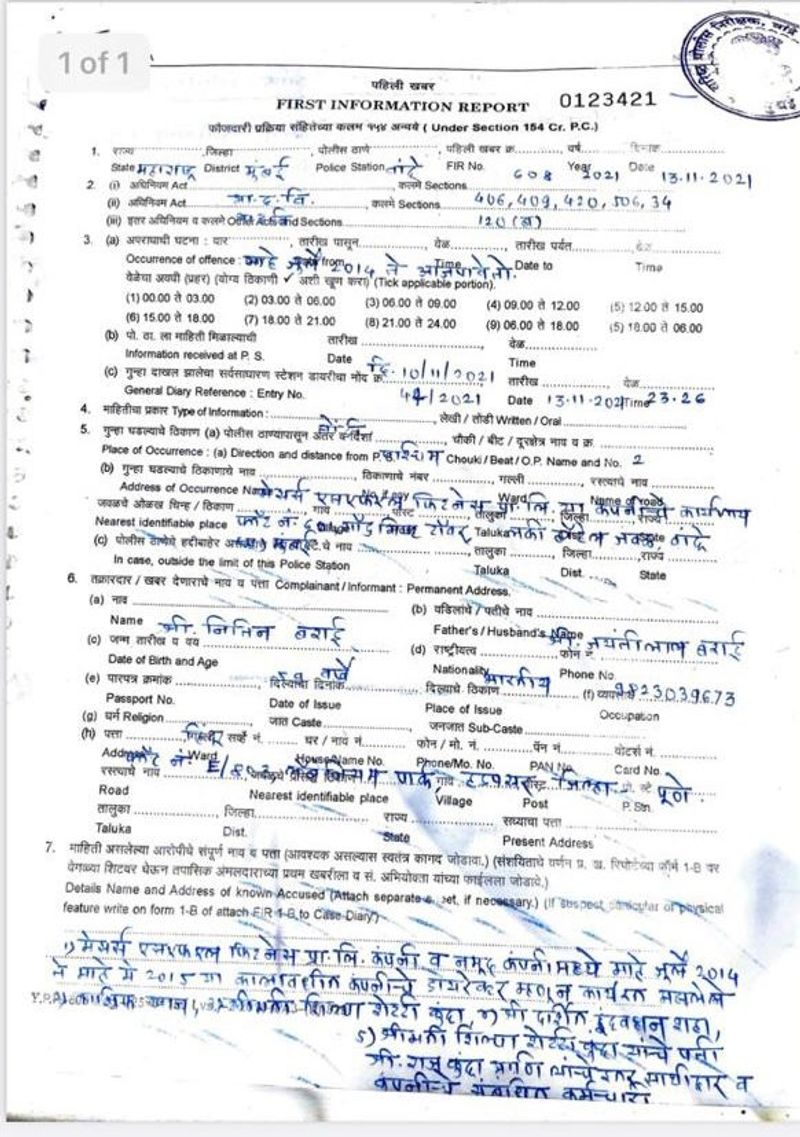 1 of 1
पहिली खबर
FIRST INFORMATION REPORT 0123421
फौजदारी प्रक्रिया संहितेच्या कलम १५४ अन्वये ( Under Section 154 Cr. P.C.)
1. राज्य जिल्हा , पोलीस ठाणे , पहिली खबर क्र. वर्ष दिनांक
State महाराष्ट्र District मुंबई Police Station वांद्रे FIR No. 608 Year 2021 Date 13.11.2021
2. (i) अधिनियम Act कलमे Sections
(ii) अधिनियम Act भा.द.वि. , कलमे Sections 406, 409, 420, 506, 34
(iii) इतर अधिनियम व कलमे Other Acts and Sections 120 (ब)
3. (a) अपराधाची घटना : वार तारीख पासून वेळ तारीख पर्यंत वेळ
Occurrence of offence : माहे जुलै from 2014 ते आजपावेतो. Time Date to Time
वेळेचा अवधी (प्रहर) (योग्य ठिकाणी ✓ अशी खूण करा) (Tick applicable portion).
(1) 00.00 ते 03.00 (2) 03.00 ते 06.00 (3) 06.00 ते 09.00 (4) 09.00 ते 12.00 (5) 12.00 ते 15.00
(6) 15.00 ते 18.00 (7) 18.00 ते 21.00 (8) 21.00 ते 24.00 (9) 06.00 ते 18.00 (5) 18.00 ते 06.00
(b) पो. ठा. ला माहिती मिळाल्याची तारीख वेळ
Information received at P. S. Date दि. 10/11/2021 Time
(c) गुन्हा दाखल झालेचा सर्वसाधारण स्टेशन डायरीचा नोंद क्र. तारीख वेळ
General Diary Reference : Entry No. 44/2021 Date 13.11.2021 Time 23.26
4. माहितीचा प्रकार Type of Information : लेखी / तोंडी Written / Oral
5. गुन्हा घडल्याचे ठिकाण (a) पोलीस ठाण्यापासून अंतर व दिशा चौकी / बीट / दूरक्षेत्र नाव व क्र.
Place of Occurrence : (a) Direction and distance from P.S. पश्चिम Chouki / Beat / O.P. Name and No. 2
(b) गुन्हा घडल्याचे ठिकाणाचे नाव ठिकाणाचे नंबर गल्ली रस्त्याचे नाव
Address of Occurrence Name मेसर्स एसएफएल फिटनेस प्रा. लि. या कंपनीचे कार्यालय Ward Name of road
जवळचे ओळख चिन्ह / ठिकाण गाव पोस्ट तालुका जिल्हा राज्य
Nearest identifiable place प्लॉट नं. Taluka
(c) पोलीस ठाणेचे हद्दीबाहेर तालुका जिल्हा राज्य
In case, outside the limit of this Police Station Taluka Dist. State
6. तक्रारदार / खबर देणाराचे नाव व पत्ता Complainant / Informant : Permanent Address.
(a) नाव (b) वडिलांचे / पतीचे नाव
Name श्री. नितिन बराई Father's / Husband's Name श्री. जयंतीलाल बराई
(c) जन्म तारीख व वय (d) राष्ट्रीयत्व फोन नं.
Date of Birth and Age वर्षे Nationality भारतीय Phone No. 9823039673
(e) पारपत्र क्रमांक दिल्याचा दिनांक दिल्याचे ठिकाण (f) व्यवसाय
Passport No. Date of Issue Place of Issue Occupation
(g) धर्म Religion जात Caste जनजात Sub-Caste
(h) पत्ता हिन्दू सर्व्हे नं. घर / नाव नं. फोन / मो. नं. पॅन नं. वोटर्स नं.
Address Ward House/Name No. Phone/Mo. No. PAN No. Card No.
रस्त्याचे नाव पार्क, गाव जिल्हा - पुणे.
Road Nearest identifiable place Village Post P. Stn.
तालुका जिल्हा राज्य सध्याचा पत्ता
Taluka Dist. State Present Address
7. माहिती असलेल्या आरोपीचे संपूर्ण नाव व पत्ता (आवश्यक असल्यास स्वतंत्र कागद जोडावा.) (संशयिताचे वर्णन प्र. ख. रिपोर्टच्या फॉर्म 1-B वर
वेगळ्या शिटवर घेऊन तपासिक अंमलदाराच्या प्रथम खबरीला व सं. अभियोक्ता यांच्या फाईलला जोडावे.)
Details Name and Address of known Accused (Attach separate sheet, if necessary.) (If suspect particular of physical
feature write on form 1-B of attach FIR 1-B to Case Diary)
1) मेसर्स एसएफएल फिटनेस प्रा. लि. कंपनी व नमूद कंपनीमध्ये माहे जुलै 2014
ते माहे मे 2015 या कालावधीत कंपनीचे डायरेक्टर म्हणून कार्यरत असलेले
2) काशिफ खान, 3) श्रीमती शिल्पा शेट्टी कुंद्रा, 4) श्री दर्शित इंद्रवदन शहा,
5) श्रीमती शिल्पा शेट्टी कुंद्रा यांचे पती
श्री. राज कुंद्रा आणि त्यांचे इतर साथीदार व
कंपनीचे संबंधित कर्मचारी